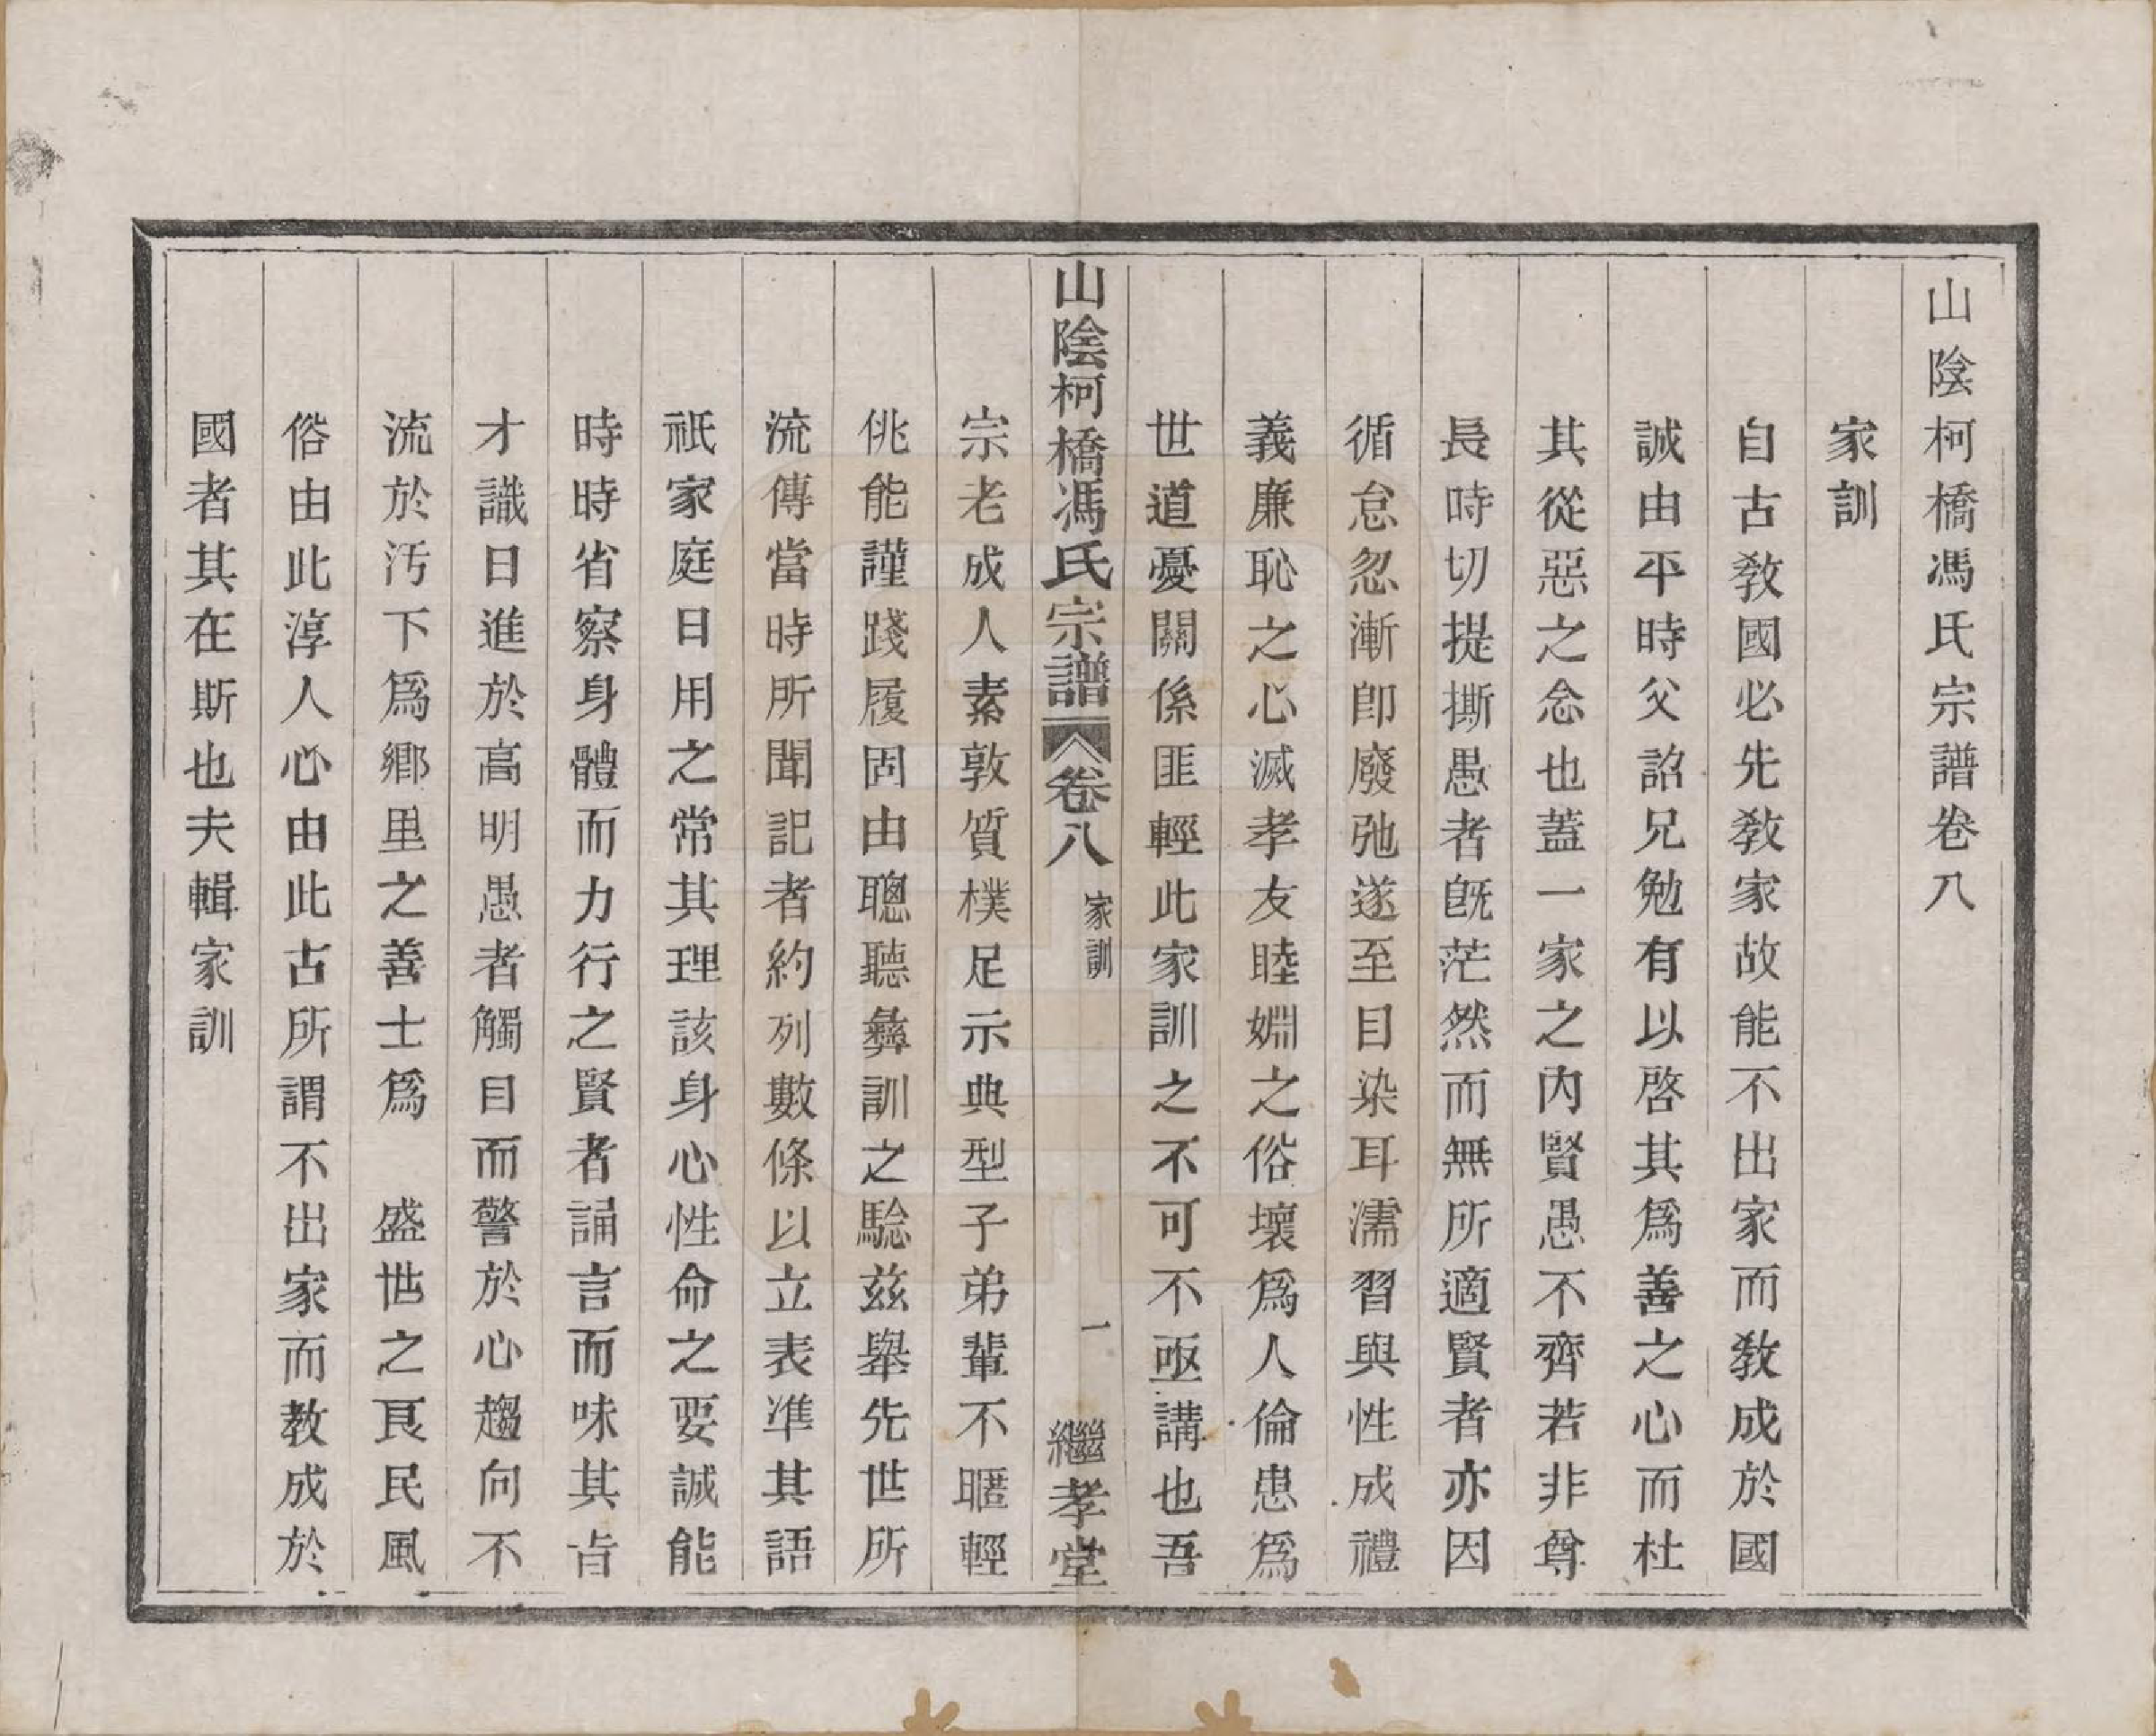 山陰柯橋馮氏宗譜卷八
家訓
自古敎國必先敎家故能不出家而敎成於國
誠由平時父詔兄勉有以啓其爲善之心而杜
其從惡之念也蓋一家之內賢愚不齊若非尊
長時切提撕愚者旣茫然而無所適賢者亦因
循怠忽漸卽廢弛遂至目染耳濡習與性成禮
義廉恥之心滅孝友睦婣之俗壞爲人倫患爲
世道憂關係匪輕此家訓之不可不亟講也吾
山陰柯橋馮氏宗譜 卷八 家訓 一 繼孝堂
宗老成人素敦質樸足示典型子弟輩不暱輕
佻能謹踐履固由聰聽彝訓之驗茲舉先世所
流傳當時所聞記者約列數條以立表準其語
祇家庭日用之常其理該身心性命之要誠能
時時省察身體而力行之賢者誦言而味其旨
才識日進於高明愚者觸目而警於心趨向不
流於汚下爲鄕里之善士爲 盛世之良民風
俗由此淳人心由此古所謂不出家而敎成於
國者其在斯也夫輯家訓